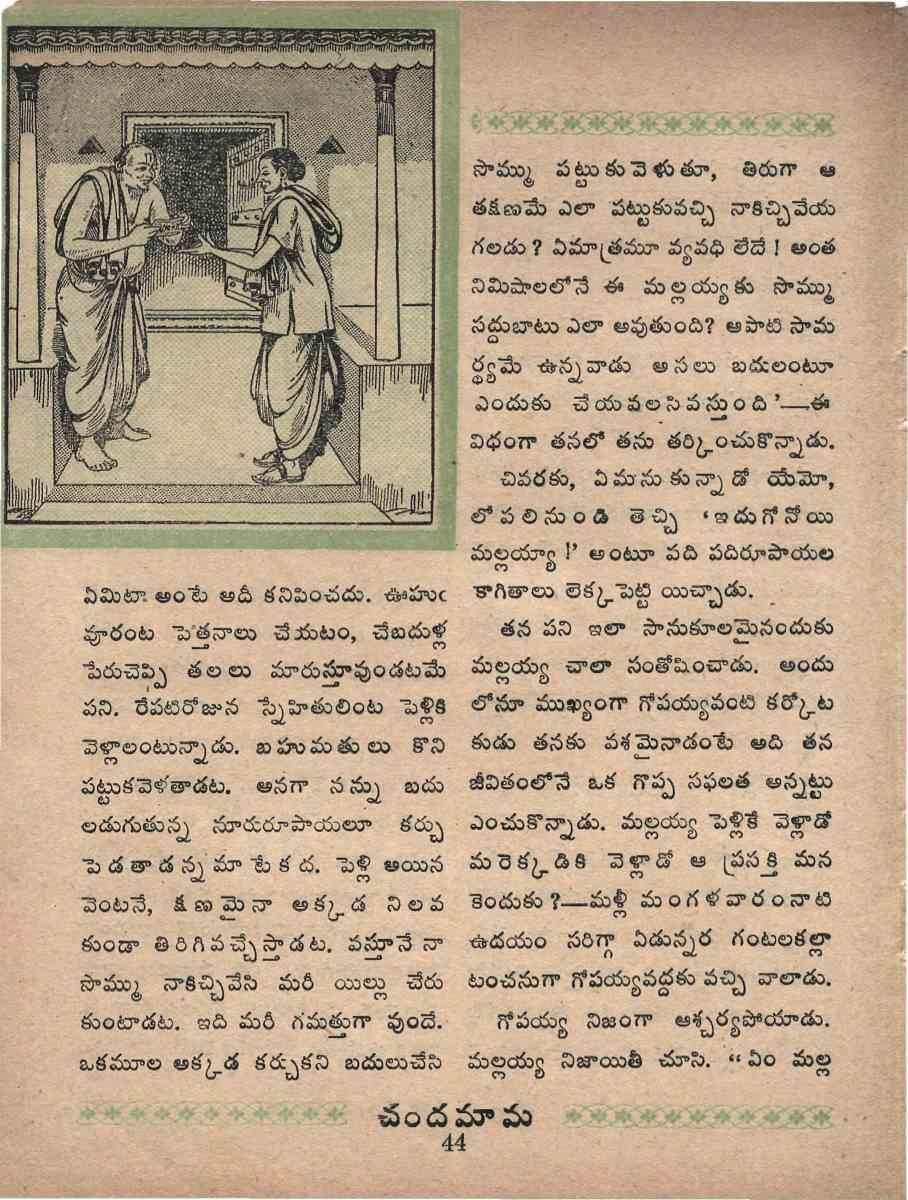 ఏమిటా అంటే అదీ కనిపించదు. ఊహుఁ
వూరంట పెత్తనాలు చేయటం, చేబదుళ్ల
పేరుచెప్పి తలలు మారుస్తూవుండటమే
పని. రేపటిరోజున స్నేహితులింట పెళ్లికి
వెళ్లాలంటున్నాడు. బహుమతులు కొని
పట్టుకవెళతాడట. అనగా నన్ను బదు
లడుగుతున్న నూరురూపాయలూ కర్చు
పెడతాడన్నమాటేకద. పెళ్లి అయిన
వెంటనే, క్షణమైనా అక్కడ నిలవ
కుండా తిరిగివచ్చేస్తాడట. వస్తూనే నా
సొమ్ము నాకిచ్చివేసి మరీ యిల్లు చేరు
కుంటాడట. ఇది మరీ గమత్తుగా వుందే.
ఒకమూల అక్కడ కర్చుకని బదులుచేసి
సొమ్ము పట్టుకువెళుతూ, తిరుగా ఆ
తక్షణమే ఎలా పట్టుకువచ్చి నాకిచ్చివేయ
గలడు? ఏమాత్రమూ వ్యవధి లేదే! అంత
నిమిషాలలోనే ఈ మల్లయ్యకు సొమ్ము
సద్దుబాటు ఎలా అవుతుంది? అపాటి సామ
ర్థ్యమే ఉన్నవాడు అసలు బదులంటూ
ఎందుకు చేయవలసివస్తుంది’—ఈ
విధంగా తనలో తను తర్కించుకొన్నాడు.
చివరకు, ఏమనుకున్నాడో యేమో,
లోపలినుండి తెచ్చి ‘ఇదుగోనోయి
మల్లయ్యా!’ అంటూ పది పదిరూపాయల
కాగితాలు లెక్కపెట్టి యిచ్చాడు.
తన పని ఇలా సానుకూలమైనందుకు
మల్లయ్య చాలా సంతోషించాడు. అందు
లోనూ ముఖ్యంగా గోపయ్యవంటి కర్కోట
కుడు తనకు వశమైనాడంటే అది తన
జీవితంలోనే ఒక గొప్ప సఫలత అన్నట్టు
ఎంచుకొన్నాడు. మల్లయ్య పెళ్లికే వెళ్లాడో
మరెక్కడికి వెళ్లాడో ఆ ప్రసక్తి మన
కెందుకు?—మళ్లీ మంగళవారంనాటి
ఉదయం సరిగ్గా ఏడున్నర గంటలకల్లా
టంచనుగా గోపయ్యవద్దకు వచ్చి వాలాడు.
గోపయ్య నిజంగా ఆశ్చర్యపోయాడు.
మల్లయ్య నిజాయితీ చూసి. “ఏం మల్ల
చందమామ
44